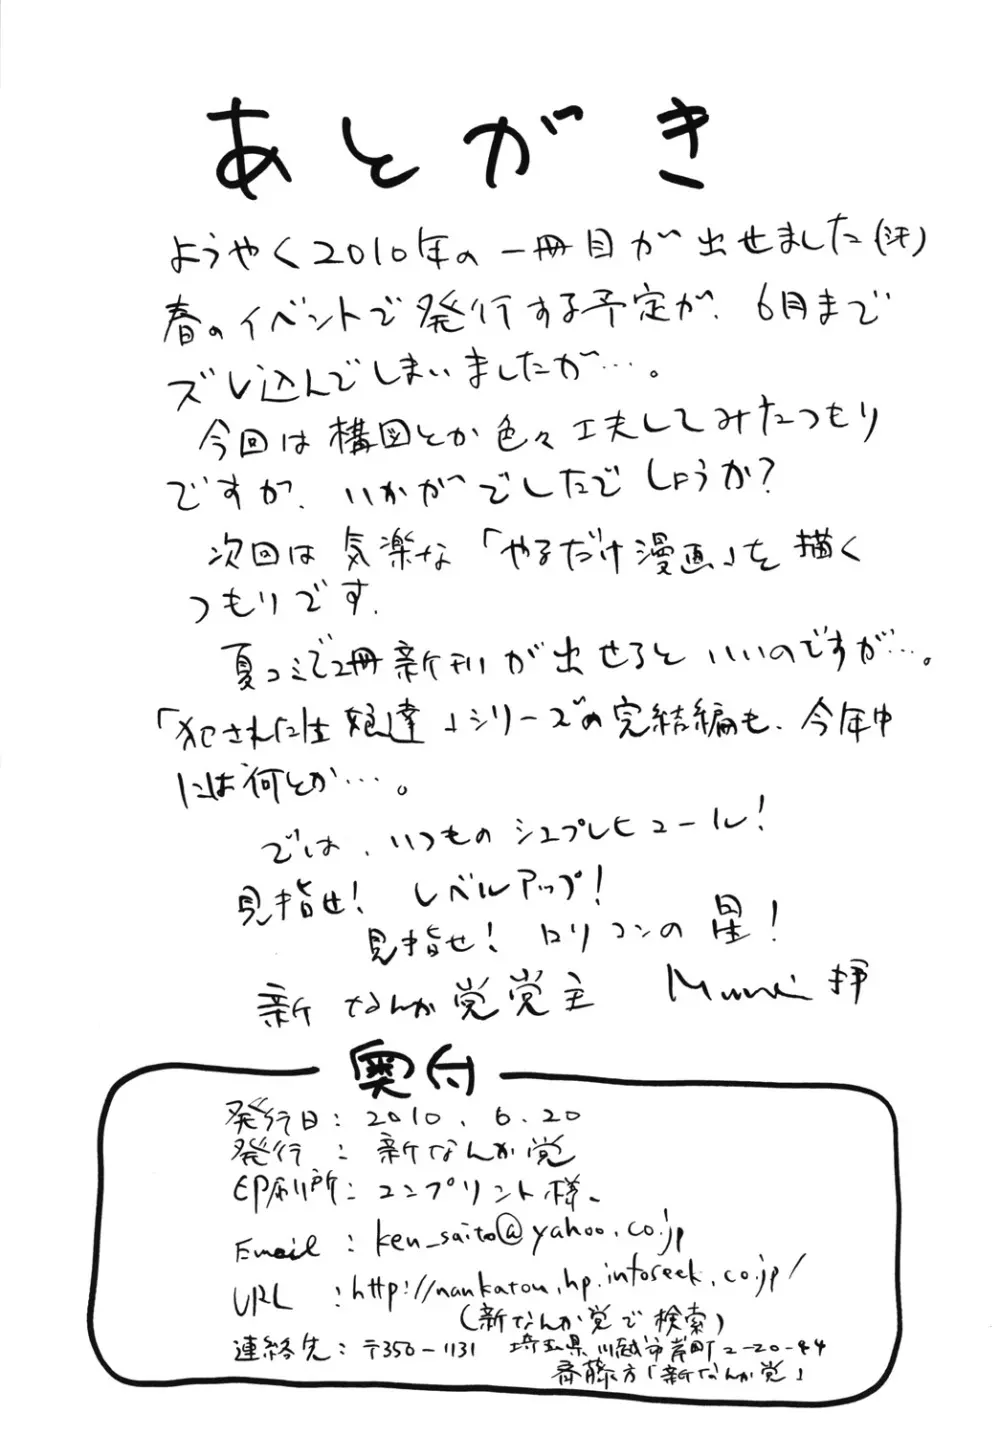 あとがき
ようやく2010年の一冊目が出せました(汗)
春のイベントで発行する予定が、6月まで
ズレ込んでしまいましたが…。
今回は構図とか色々工夫してみたつもり
ですが、いかがでしたでしょうか?
次回は気楽な「やるだけ漫画」を描く
つもりです。
夏コミで2冊新刊が出せるといいのですが…。
「犯された生娘達」シリーズの完結編も、今年中
には何とか…。
では、いつものシュプレヒコール!
見指せ! レベルアップ!
見指せ! ロリコンの星!
新なんか党党主 Munei 拝
奥付
発行日: 2010.6.20
発行 : 新なんか党
印刷所: コンプリント様、
Email : ken_saito@yahoo.co.jp
URL :http://nankatou.hp.infoseek.co.jp/
(新なんか党で検索)
連絡先: 〒350-1131 埼玉県川越市岸町2-20-44
斎藤方「新なんか党」